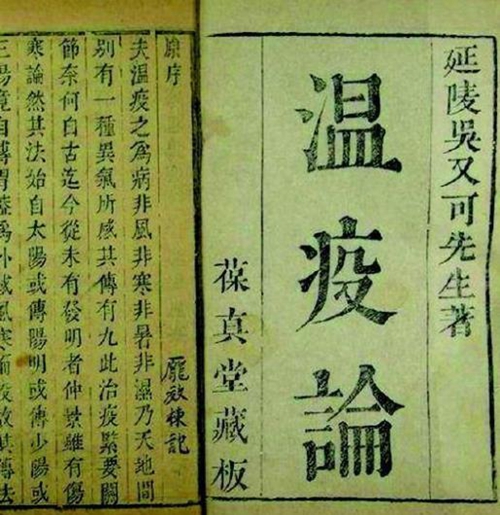 延陵吳又可先生著
温疫論
葆真堂藏板
原序
夫温疫之為病非風非寒非暑非濕乃天地間
別有一種異氣所感其傳有九此治疫緊要關
節奈何自古迄今從未有發明者仲景雖有傷
寒論然其法始自太陽或傳陽明或傳少陽或
三陽竟自傳胃